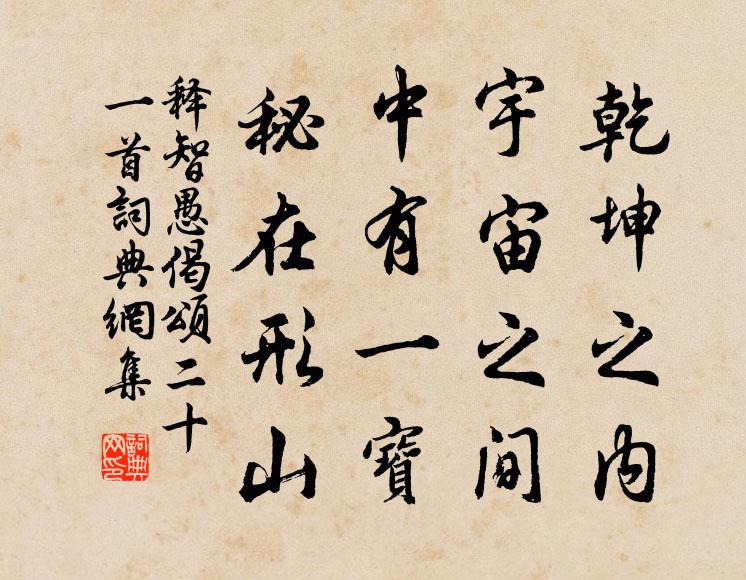 乾坤之内
宇宙之间
中有一寶
秘在形山
释智愚偈頌二十
一首詞典網集
詞典
网印